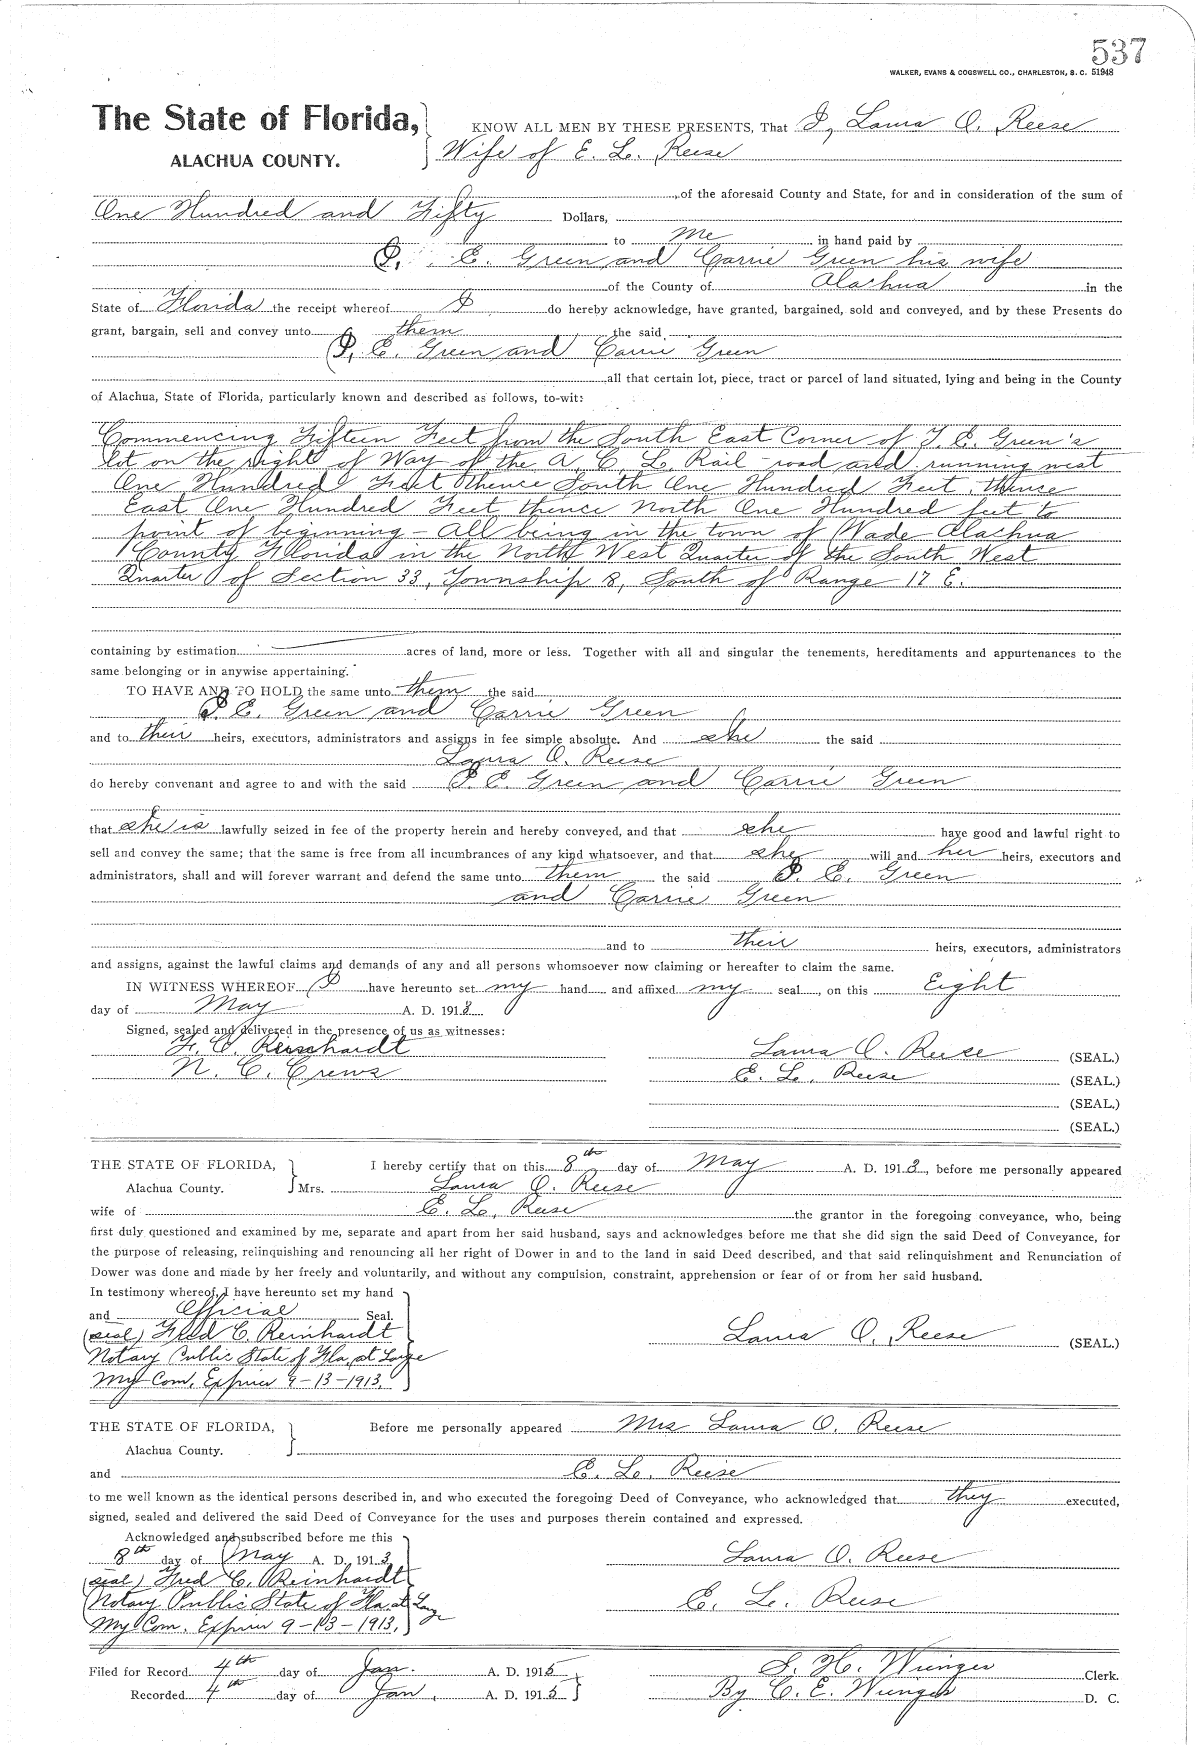 537
WALKER, EVANS & COGSWELL CO., CHARLESTON, S. C. 51948
The State of Florida, KNOW ALL MEN BY THESE PRESENTS, That I, Laura O. Reese
ALACHUA COUNTY. Wife of E. L. Reese
of the aforesaid County and State, for and in consideration of the sum of
One Hundred and Fifty Dollars,
to me in hand paid by
P. E. Green and Carrie Green his wife
of the County of Alachua in the
State of Florida the receipt whereof I do hereby acknowledge, have granted, bargained, sold and conveyed, and by these Presents do
grant, bargain, sell and convey unto them the said
P. E. Green and Carrie Green
all that certain lot, piece, tract or parcel of land situated, lying and being in the County
of Alachua, State of Florida, particularly known and described as follows, to-wit:
Commencing Fifteen Feet from the South East Corner of J. E. Green's
lot on the right of Way of the A. C. L. Rail-road and running west
One Hundred Feet thence South One Hundred Feet, thence
East One Hundred Feet thence North One Hundred feet to
point of beginning - All being in the town of Wade Alachua
County Florida in the North West Quarter of the South West
Quarter of Section 33, Township 8, South of Range 17 E.
containing by estimation acres of land, more or less. Together with all and singular the tenements, hereditaments and appurtenances to the
same belonging or in anywise appertaining.
TO HAVE AND TO HOLD the same unto them the said
P. E. Green and Carrie Green
and to their heirs, executors, administrators and assigns in fee simple absolute. And she the said
Laura O. Reese
do hereby convenant and agree to and with the said P. E. Green and Carrie Green
that she is lawfully seized in fee of the property herein and hereby conveyed, and that she have good and lawful right to
sell and convey the same; that the same is free from all incumbrances of any kind whatsoever, and that she will and her heirs, executors and
administrators, shall and will forever warrant and defend the same unto them the said P. E. Green
and Carrie Green
and to their heirs, executors, administrators
and assigns, against the lawful claims and demands of any and all persons whomsoever now claiming or hereafter to claim the same.
IN WITNESS WHEREOF I have hereunto set my hand and affixed my seal, on this Eight
day of May A. D. 1913
Signed, sealed and delivered in the presence of us as witnesses:
F. C. Reinhardt Laura O. Reese (SEAL.)
N. C. Crews E. L. Reese (SEAL.)
(SEAL.)
(SEAL.)
THE STATE OF FLORIDA, I hereby certify that on this 8th day of May A. D. 1913, before me personally appeared
Alachua County. Mrs. Laura O. Reese
wife of E. L. Reese the grantor in the foregoing conveyance, who, being
first duly questioned and examined by me, separate and apart from her said husband, says and acknowledges before me that she did sign the said Deed of Conveyance, for
the purpose of releasing, relinquishing and renouncing all her right of Dower in and to the land in said Deed described, and that said relinquishment and Renunciation of
Dower was done and made by her freely and voluntarily, and without any compulsion, constraint, apprehension or fear of or from her said husband.
In testimony whereof, I have hereunto set my hand
and Official Seal.
(seal) Fred C. Reinhardt Laura O. Reese (SEAL.)
Notary Public State of Fla, at Large
My Com. Expires 9-13-1913.
THE STATE OF FLORIDA, Before me personally appeared Mrs Laura O. Reese
Alachua County.
and E. L. Reese
to me well known as the identical persons described in, and who executed the foregoing Deed of Conveyance, who acknowledged that they executed,
signed, sealed and delivered the said Deed of Conveyance for the uses and purposes therein contained and expressed.
Acknowledged and subscribed before me this
8th day of May A. D. 1913 Laura O. Reese
(seal) Fred C. Reinhardt
Notary Public State of Fla. at Large E. L. Reese
My Com. Expires 9-13-1913.
Filed for Record 4th day of Jan. A. D. 1915 S. H. Wienges Clerk.
Recorded 4th day of Jan, A. D. 1915 By C. E. Wienges D. C.